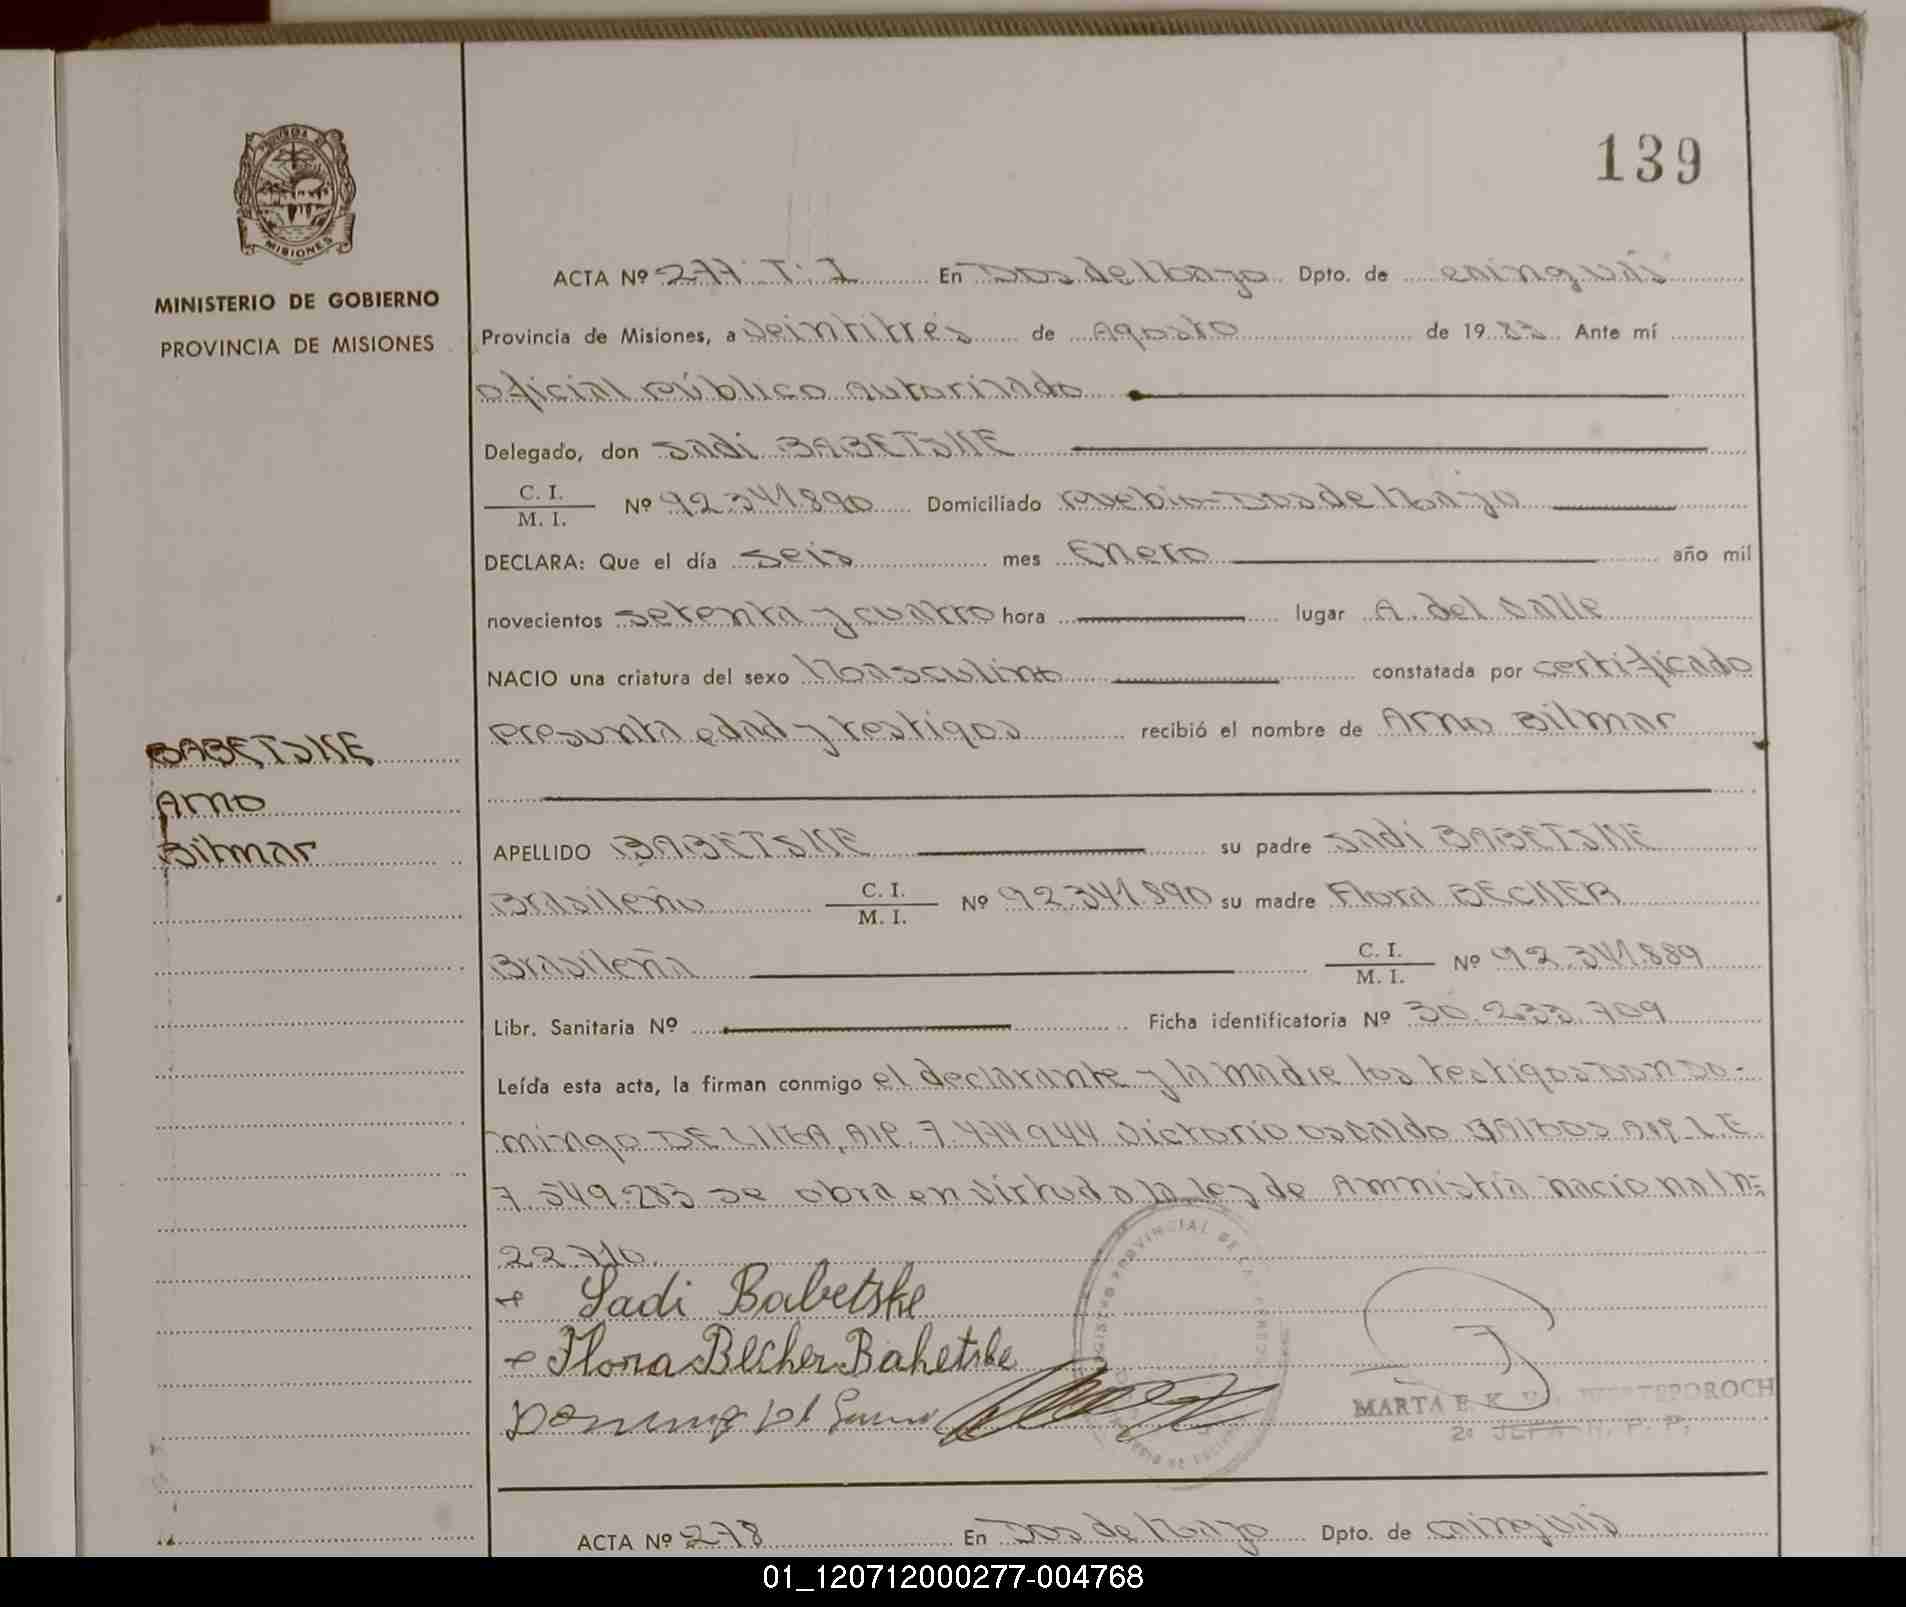 139
MISIONES
MINISTERIO DE GOBIERNO
PROVINCIA DE MISIONES
ACTA Nº 277. T. I En Dos de Mayo Dpto. de Cainguás
Provincia de Misiones, a Veintitrés de Agosto de 1983 Ante mí
oficial público autorizado
Delegado, don Sadi BABETSKE
C. I.
M. I. Nº 92.341.890 Domiciliado Pueblo-Dos de Mayo
DECLARA: Que el día Seis mes Enero año mil
novecientos setenta y cuatro hora lugar A. del Valle
NACIO una criatura del sexo Masculino constatada por certificado
presunta edad y testigos recibió el nombre de Arno Bilmar
BABETSKE
Arno
Bilmar
APELLIDO BABETSKE su padre Sadi BABETSKE
Brasileño C. I.
M. I. Nº 92.341.890 su madre Flora BECKER
Brasileña C. I.
M. I. Nº 92.341.889
Libr. Sanitaria Nº Ficha identificatoria Nº 30.233.709
Leída esta acta, la firman conmigo el declarante y la madre los testigos Don Do-
mingo DE LIMA, AIP. 7.474.944 Victorio osvaldo
7.549.283 se obra en virtud a la ley de Amnistía nacional nº
22.710.
Sadi Babetske
Flora Becker Babetske
MARTA E. K.
2º JEFA R. P. P.
ACTA Nº 278 En Dos de Mayo Dpto. de Cainguás
01_120712000277-004768